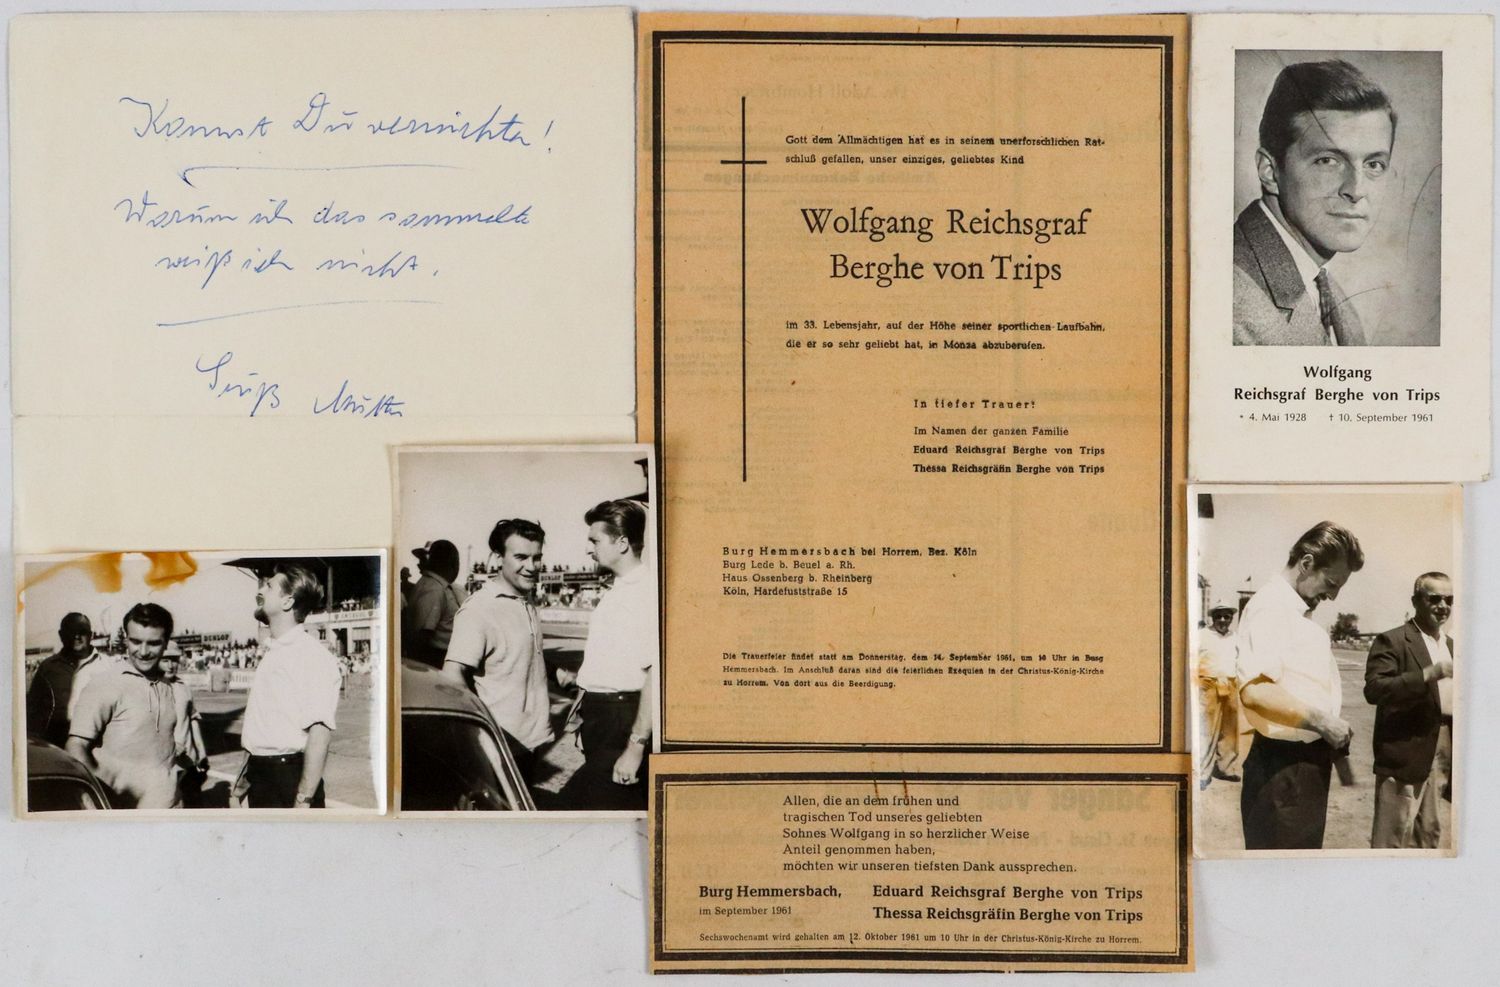 Kannst Du vernichten!
Warum ich das sammelte
weiß ich nicht.
Gruß Mutter
Gott dem Allmächtigen hat es in seinem unerforschlichen Rat-
schluß gefallen, unser einziges, geliebtes Kind
Wolfgang Reichsgraf
Berghe von Trips
im 33. Lebensjahr, auf der Höhe seiner sportlichen Laufbahn,
die er so sehr geliebt hat, in Monza abzuberufen.
In tiefer Trauer:
Im Namen der ganzen Familie
Eduard Reichsgraf Berghe von Trips
Thessa Reichsgräfin Berghe von Trips
Burg Hemmersbach bei Horrem, Bez. Köln
Burg Lede b. Beuel a. Rh.
Haus Ossenberg b. Rheinberg
Köln, Hardefuststraße 15
Die Trauerfeier findet statt am Donnerstag, dem 14. September 1961, um 10 Uhr in Burg
Hemmersbach. Im Anschluß daran sind die feierlichen Exequien in der Christus-König-Kirche
zu Horrem. Von dort aus die Beerdigung.
Allen, die an dem frühen und
tragischen Tod unseres geliebten
Sohnes Wolfgang in so herzlicher Weise
Anteil genommen haben,
möchten wir unseren tiefsten Dank aussprechen.
Burg Hemmersbach,
im September 1961
Eduard Reichsgraf Berghe von Trips
Thessa Reichsgräfin Berghe von Trips
Sechswochenamt wird gehalten am 12. Oktober 1961 um 10 Uhr in der Christus-König-Kirche zu Horrem.
Wolfgang
Reichsgraf Berghe von Trips
* 4. Mai 1928 † 10. September 1961
DUNLOP
DUNLOP